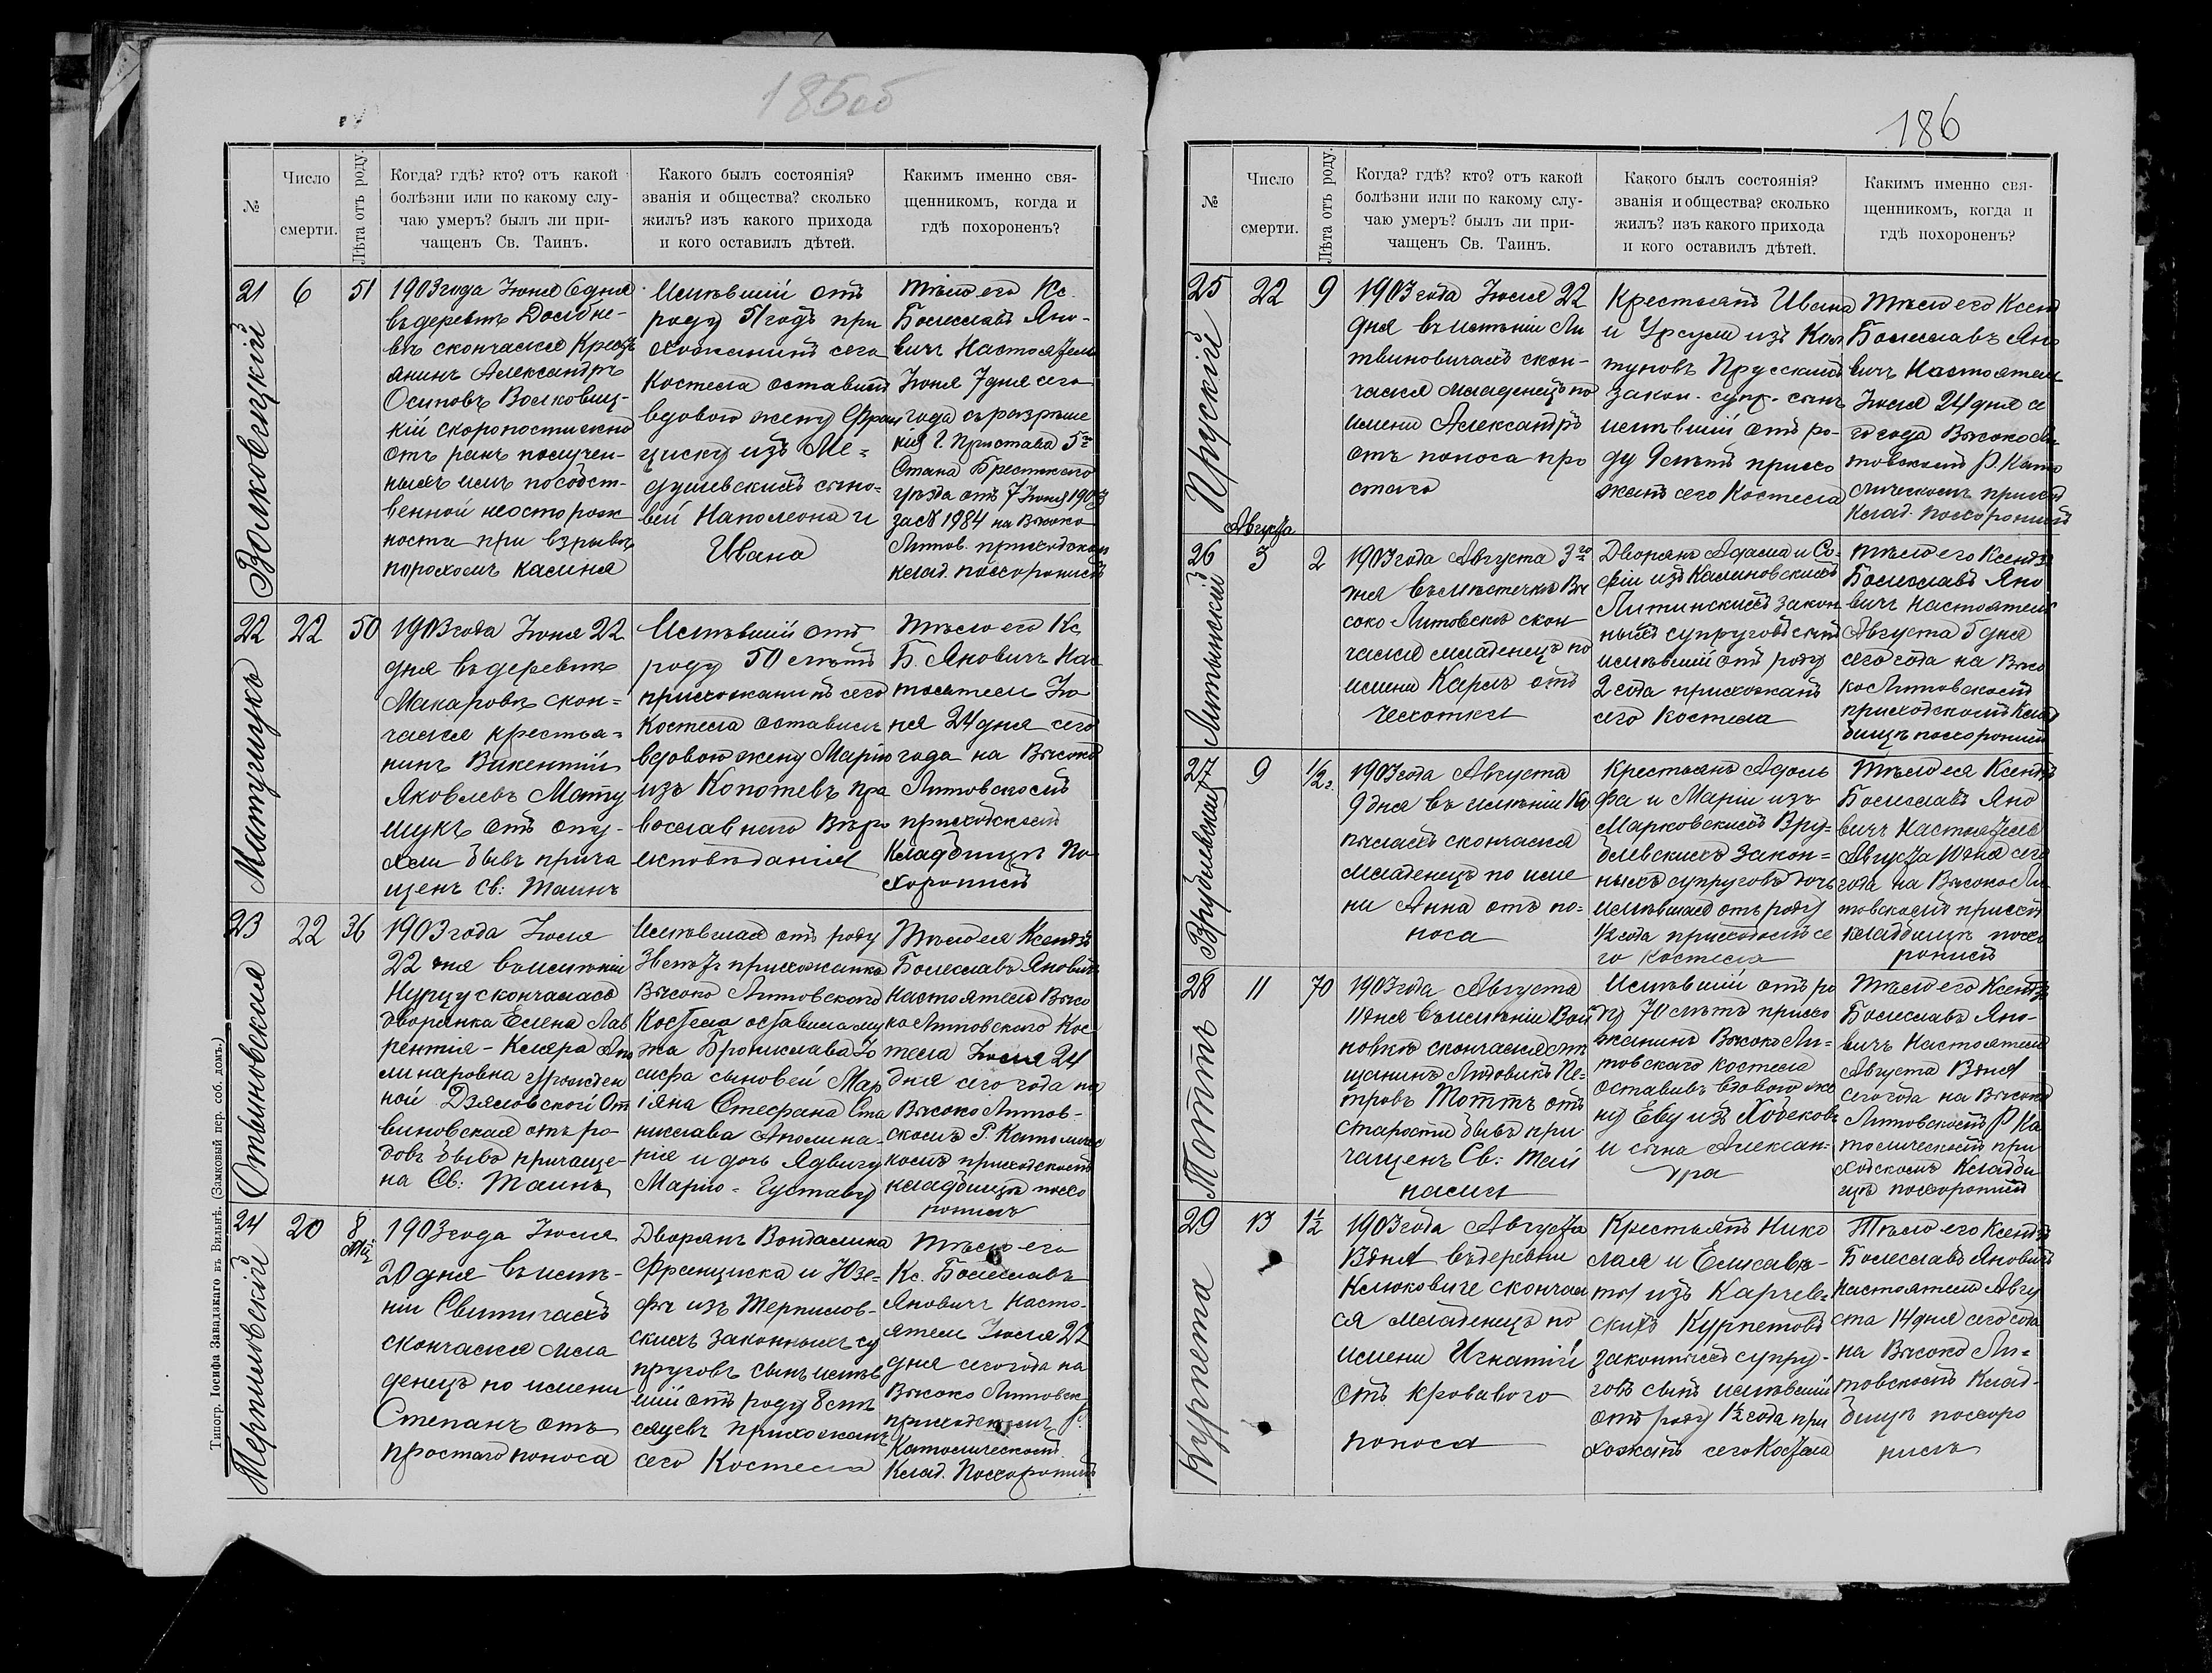 185об
№
Число
смерти.
Лѣта отъ роду.
Когда? гдѣ? кто? отъ какой
болѣзни или по какому слу-
чаю умеръ? былъ ли при-
чащенъ Св. Таинъ.
Какого былъ состоянія?
званія и общества? сколько
жилъ? изъ какого прихода
и кого оставилъ дѣтей.
Какимъ именно свя-
щенникомъ, когда и
гдѣ похороненъ?
21
Волковецкій
6
51
1903 года Іюня 6 дня
въ деревнѣ
скончался Крест
янинъ Александръ
Осиповъ Волковиц-
кій скоропостижно
отъ ранъ получен-
ныхъ имъ по собст-
венной неосторож
ности при взрывѣ
порохомъ камня
Имѣвшій отъ
роду 51 годъ при
хожанинъ сего
Костела оставилъ
вдовою жену Фран
циску изъ Ме-
душевскихъ сыно-
вей Наполеона и
Ивана
Тѣло его Кс.
Болеславъ Яно-
вичъ Настоятель
Іюня 7 дня сего
года съ разрѣше
нія Г. Пристава 5го
Стана Брестскаго
уѣзда отъ 7 Іюня 1903
за № 1984 на Высоко
Литов. приходском
клад. похоронилъ
22
Матущукъ
22
50
1903 года Іюня 22
дня въ деревнѣ
Макаровѣ скон-
чался крестья-
нинъ Викентій
Яковлевъ Мату
щукъ отъ опу-
холи бывъ прича
щенъ Св: Таинъ
Имѣвшій отъ
роду 50 лѣтъ
прихожанинъ сего
Костела оставилъ
вдовою жену Марію
изъ Копотевъ пра
вославнаго Вѣро
исповѣданія
Тѣло его Кс
Б. Яновичъ Нас
тоятель Ію
ня 24 дня сего
года на Высоко
Литовскомъ
приходскомъ
Кладбищѣ По-
хоронилъ
23
Отвиновская
22
36
1903 года Іюля
22 дня въ имѣніи
Нурцу скончалась
дворянка Елена Лав
рентія - Клара Апо
линаровна урожден
ной Дзяловской От
виновская отъ ро-
довъ бывъ причаще-
на Св: Таинъ
Имѣвшая отъ роду
36 лѣтъ прихожанка
Высоко Литовскаго
Костела оставила му
жа Бронислава Іо
сифа сыновей Мар
іяна Стефана Ста
нислава Аполина-
рія и дочь Ядвигу
Марію - Густаву
Тѣло ея Ксендзъ
Болеславъ Яновичъ
Настоятель Высо
ко Литовскаго Кос
тела Іюля 24
дня сего года на
Высоко Литов-
скомъ Р. Католичес
комъ приходскомъ
кладбищѣ похо
ронилъ
24
Терпиловскій
20
8
1903 года Іюля
20 дня въ имѣ-
ніи Свитичахъ
скончался мла
денецъ по имени
Степанъ отъ
простаго поноса
Дворянъ Вондалина
Франциска и Юзе-
фы изъ Терпилов-
скихъ законныхъ су
пруговъ сынъ имѣв
шій отъ роду 8 мѣ
сяцевъ прихожанъ
сего Костела
Тѣло его
Кс. Болеславъ
Яновичъ Насто-
ятель Іюля 22
дня сего года на
Высоко Литовск
приходскомъ Р.
Католическомъ
Клад. Похоронилъ
Типогр. Іосифа Завадзкаго въ Вильнѣ. (Замковый пер. соб. домъ.)
186
№
Число
смерти.
Лѣта отъ роду.
Когда? гдѣ? кто? отъ какой
болѣзни или по какому слу-
чаю умеръ? былъ ли при-
чащенъ Св. Таинъ.
Какого былъ состоянія?
званія и общества? сколько
жилъ? изъ какого прихода
и кого оставилъ дѣтей.
Какимъ именно свя-
щенникомъ, когда и
гдѣ похороненъ?
25
Прускій
22
9
1903 года Іюля 22
дня въ имѣніи Ли
твиновичахъ скон-
чался младенецъ по
имени Александръ
отъ поноса про
стаго
Крестьянъ Ивана
и Урсули изъ Кол
туновъ Прусскихъ
закон. супр. сынъ
имѣвшій отъ ро-
ду 9 лѣтъ прихо
жанъ сего Костела
Тѣло его Ксенд
Болеславъ Яно
вичъ Настоятель
Іюля 24 дня се
го года Высоко Ли-
товскомъ Р. Като
лическомъ приход
Клад. похоронилъ
Августа
26
Литынскій
3
2
1903 года Августа 3го
дня въ мѣстечкѣ Вы
соко Литовскѣ скон
чался младенецъ по
имени Карлъ отъ
чехотки
Дворянъ Адама и Со-
фіи изъ Калиновскихъ
Литинскихъ закон
ныхъ супруговъ сынъ
имѣвшій отъ роду
2 года прихожанъ
сего Костела
Тѣло его Ксендзъ
Болеславъ Яно
вичъ Настоятель
Августа 5 дня
сего года на Высо
ко Литовскомъ
приходскомъ Клад
бищѣ похоронилъ
27
Врублевская
9
1/2 г.
1903 года Августа
9 дня въ имѣніи
скончался
младенецъ по име
ни Анна отъ по-
носа
Крестьянъ Адоль
фа и Маріи изъ
Марковскихъ Вру-
блевскихъ закон-
ныхъ супруговъ дочь
имѣвшая отъ роду
1/2 года приходомъ се
го Костела
Тѣло ея Ксендзъ
Болеславъ Яно
вичъ Настоятель
Августа 10 дня сего
года на Высоко Ли
товскомъ приход
кладбищѣ похо
ронилъ
28
Тоттъ
11
70
1903 года Августа
11 дня въ имѣніи Вой
новкѣ скончался мѣ
щанинъ Людовикъ Пе-
тровъ Тоттъ отъ
старости бывъ при
чащенъ Св: Тай
нами
Имѣвшій отъ ро
ду 70 лѣтъ прихо
жанинъ Высоко Ли-
товскаго костела
оставивъ вдовою же
ну Еву изъ Ходеков
и сына Алексан-
дра
Тѣло его Ксендзъ
Болеславъ Яно-
вичъ Настоятель
Августа 13 дня
сего года на Высоко
Литовскомъ Р Ка
толическомъ при
ходскомъ Кладби
щѣ похоронилъ
29
Курпета
13
1½
1903 года Августа
13 дня въ деревни
Клюковиче скончал
ся младенецъ по
имени Игнатій
отъ кроваваго
поноса
Крестьянъ Нико
лая и Елисаве-
ты изъ Карчев-
скихъ Курпетовъ
законныхъ супру-
говъ сынъ имѣвшій
отъ роду 1½ года при
хожанъ сего Костела
Тѣло его Ксендзъ
Болеславъ Яновичъ
Настоятель Авгу
ста 14 дня сего года
на Высоко Ли-
товскомъ Клад-
бищѣ похоро
нилъ